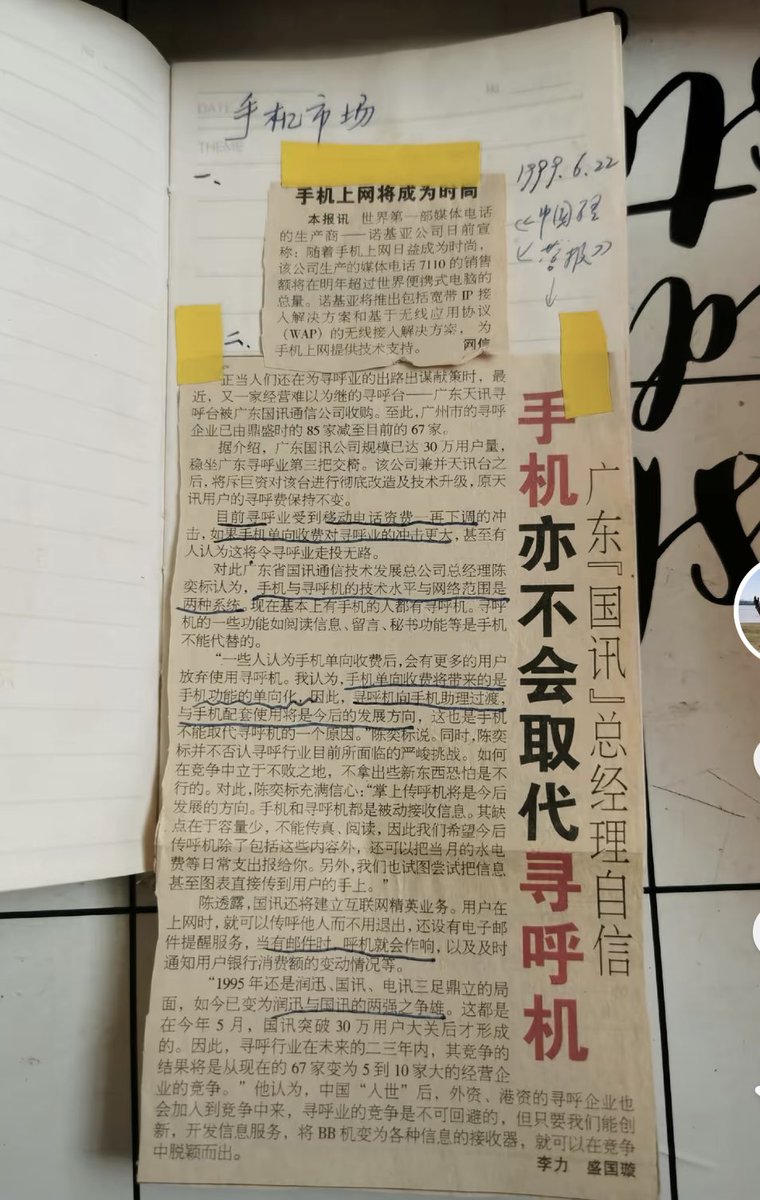 DATE
手机市场
THEME
一、
1999.6.22
《中国经
营报》
↓
手机上网将成为时尚
本报讯 世界第一部媒体电话
的生产商——诺基亚公司日前宣
称：随着手机上网日益成为时尚，
该公司生产的媒体电话 7110 的销售
额将在明年超过世界便携式电脑的
总量。诺基亚将推出包括宽带 IP 接
入解决方案和基于无线应用协议
（WAP）的无线接入解决方案，为
手机上网提供技术支持。 网信
二、
广东『国讯』总经理自信
手机亦不会取代寻呼机
正当人们还在为寻呼业的出路出谋献策时，最
近，又一家经营难以为继的寻呼台——广东天讯寻
呼台被广东国讯通信公司收购。至此，广州市的寻呼
企业已由鼎盛时的 85 家减至目前的 67 家。
据介绍，广东国讯公司规模已达 30 万用户量，
稳坐广东寻呼业第三把交椅。该公司兼并天讯台之
后，将斥巨资对该台进行彻底改造及技术升级，原天
讯用户的寻呼费保持不变。
目前寻呼业受到移动电话资费一再下调的冲
击，如果手机单向收费对寻呼业的冲击更大，甚至有
人认为这将令寻呼业走投无路。
对此广东省国讯通信技术发展总公司总经理陈
奕标认为，手机与寻呼机的技术水平与网络范围是
两种系统。现在基本上有手机的人都有寻呼机。寻呼
机的一些功能如阅读信息、留言、秘书功能等是手机
不能代替的。
“一些人认为手机单向收费后，会有更多的用户
放弃使用寻呼机。我认为，手机单向收费将带来的是
手机功能的单向化，因此，寻呼机向手机助理过渡，
与手机配套使用将是今后的发展方向，这也是手机
不能取代寻呼机的一个原因。”陈奕标说。同时，陈奕
标并不否认寻呼行业目前所面临的严峻挑战。如何
在竞争中立于不败之地，不拿出些新东西恐怕是不
行的。对此，陈奕标充满信心：“掌上传呼机将是今后
发展的方向。手机和寻呼机都是被动接收信息。其缺
点在于容量少，不能传真、阅读，因此我们希望今后
传呼机除了包括这些内容外，还可以把当月的水电
费等日常支出报给你。另外，我们也试图尝试把信息
甚至图表直接传到用户的手上。”
陈透露，国讯还将建立互联网精英业务。用户在
上网时，就可以传呼他人而不用退出，还设有电子邮
件提醒服务，当有邮件时，呼机就会作响，以及及时
通知用户银行消费额的变动情况等。
“1995 年还是润迅、国讯、电讯三足鼎立的局
面，如今已变为润迅与国讯的两强之争雄。这都是
在今年 5 月，国讯突破 30 万用户大关后才形成
的。因此，寻呼行业在未来的二三年内，其竞争的
结果将是从现在的 67 家变为 5 到 10 家大的经营企
业的竞争。”他认为，中国“入世”后，外资、港资的寻呼企业也
会加入到竞争中来，寻呼业的竞争是不可回避的，但只要我们能创
新，开发信息服务，将 BB 机变为各种信息的接收器，就可以在竞争
中脱颖而出。 李力 盛国璇